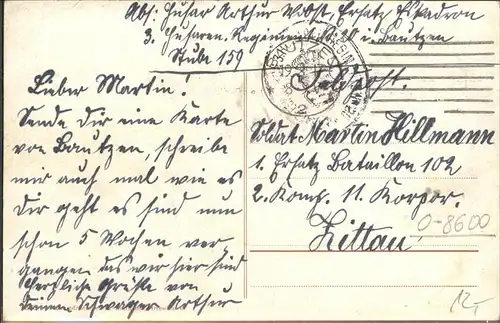 Abs: Husar Arthur Wobst, Ersatz Eskadron
3. Husaren, Regiment No. 20 i. Bautzen
Stube 159
Feldpost.
Lieber Martin!
Sende dir eine Karte
von Bautzen, schreibe
mir auch mal wie es
dir geht es sind nun
schon 5 Wochen ver-
gangen das wir hier sind
herzliche Grüße von
deinen Schwager Arthur
Soldat Martin Hillmann
1. Ersatz Bataillon 102
2. Komp. 11. Korpor.
Zittau
0-8600
12,-